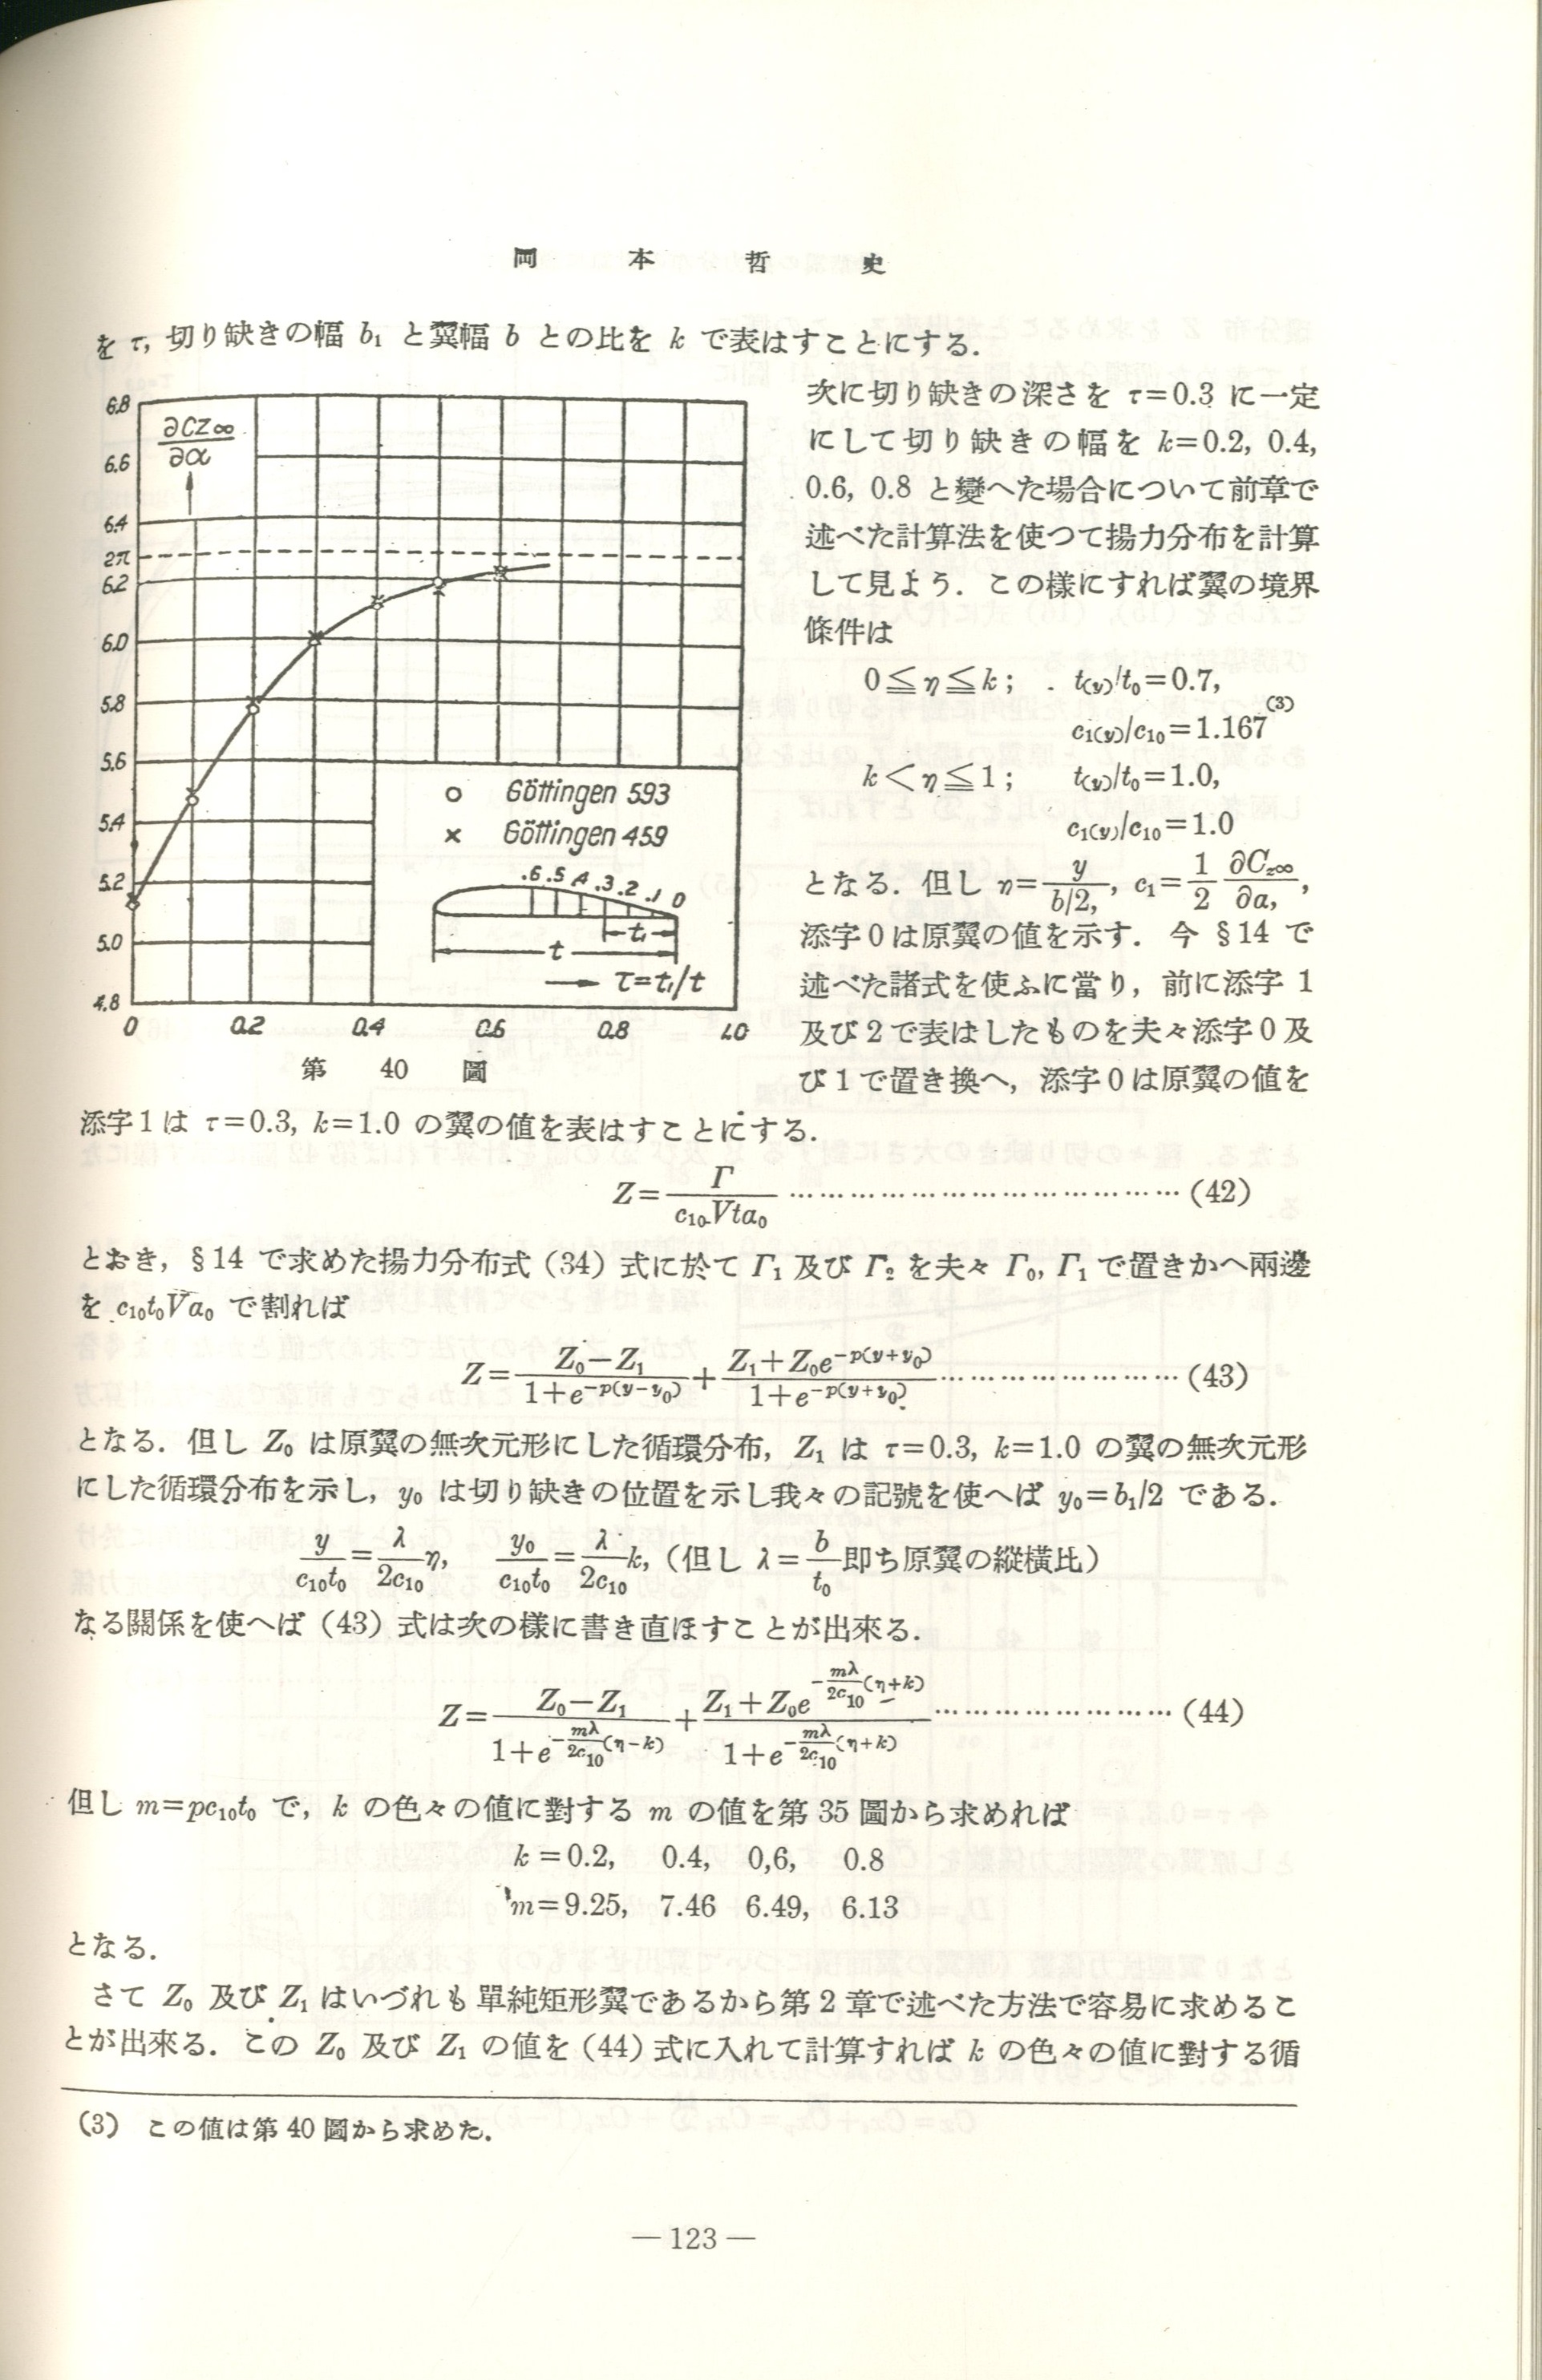 岡本哲史
を τ, 切り缺きの幅 b₁ と翼幅 b との比を k で表はすことにする.
6.8
6.6
6.4
2π
6.2
6.0
5.8
5.6
5.4
5.2
5.0
4.8
∂Cz∞/∂α
○ Göttingen 593
× Göttingen 459
.6 .5 .4 .3 .2 .1 0
t₁
t
τ=t₁/t
0 0.2 0.4 0.6 0.8 1.0
第 40 圖
次に切り缺きの深さを τ=0.3 に一定
にして切り缺きの幅を k=0.2, 0.4,
0.6, 0.8 と變へた場合について前章で
述べた計算法を使つて揚力分布を計算
して見よう. この樣にすれば翼の境界
條件は
0≦η≦k; t(y)/t₀=0.7,
c₁(y)/c₁₀=1.167⁽³⁾
k<η≦1; t(y)/t₀=1.0,
c₁(y)/c₁₀=1.0
となる. 但し η=y/(b/2), c₁=1/2 ∂Cz∞/∂α,
添字0は原翼の値を示す. 今 §14 で
述べた諸式を使ふに當り, 前に添字 1
及び2で表はしたものを夫々添字0及
び1で置き換へ, 添字0は原翼の値を
添字1は τ=0.3, k=1.0 の翼の値を表はすことにする.
Z=Γ/(c₁₀Vtα₀) ……………………………… (42)
とおき, §14 で求めた揚力分布式 (34) 式に於て Γ₁ 及び Γ₂ を夫々 Γ₀, Γ₁ で置きかへ兩邊
を c₁₀t₀Vα₀ で割れば
Z=(Z₀−Z₁)/(1+e^{−p(y−y₀)})+(Z₁+Z₀e^{−p(y+y₀)})/(1+e^{−p(y+y₀)}) …………………… (43)
となる. 但し Z₀ は原翼の無次元形にした循環分布, Z₁ は τ=0.3, k=1.0 の翼の無次元形
にした循環分布を示し, y₀ は切り缺きの位置を示し我々の記號を使へば y₀=b₁/2 である.
y/(c₁₀t₀)=λ/(2c₁₀) η, y₀/(c₁₀t₀)=λ/(2c₁₀) k, (但し λ=b/t₀ 即ち原翼の縱横比)
なる關係を使へば (43) 式は次の樣に書き直ほすことが出來る.
Z=(Z₀−Z₁)/(1+e^{−mλ/2c₁₀(η−k)})+(Z₁+Z₀e^{−mλ/2c₁₀(η+k)})/(1+e^{−mλ/2c₁₀(η+k)}) …………………… (44)
但し m=pc₁₀t₀ で, k の色々の値に對する m の値を第 35 圖から求めれば
k=0.2, 0.4, 0,6, 0.8
m=9.25, 7.46 6.49, 6.13
となる.
さて Z₀ 及び Z₁ はいづれも單純矩形翼であるから第2章で述べた方法で容易に求めるこ
とが出來る. この Z₀ 及び Z₁ の値を (44) 式に入れて計算すれば k の色々の値に對する循
(3) この値は第 40 圖から求めた.
—123—